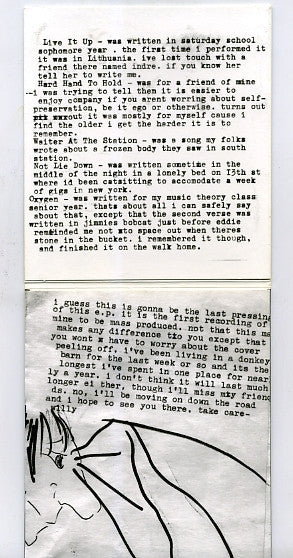 Live It Up - was written in saturday school
sophomore year . the first time i performed it
it was in Lithuania. ive lost touch with a
friend there named indre. if you know her
tell her to write me.
Hard Hand To Hold - was for a friend of mine
i was trying to tell them it is easier to
enjoy company if you arent worring about self-
preservation, be it ego or otherwise. turns out
out it was mostly for myself cause i
find the older i get the harder it is to
remember.
Waiter At The Station - was a song my folks
wrote about a frozen body they saw in south
station.
Not Lie Down - was written sometime in the
middle of the night in a lonely bed on 13th st
where id been catsitting to accomodate a week
of gigs in new york.
Oxygen - was written for my music theory class
senior year. thats about all i can safely say
about that, except that the second verse was
written in jimmies bobcat just before eddie
reminded me not to space out when theres
stone in the bucket. i remembered it though,
and finished it on the walk home.
i guess this is gonna be the last pressing
of this e.p. it is the first recording of
mine to be mass produced, not that this ma
makes any difference to you except that
you wont have to worry about the cover
peeling off. i've been living in a donkey
barn for the last week or so and its the
longest i've spent in one place for near
ly a year. i don't think it will last much
longer ei ther, though i'll miss my frien
ds. no, i'll be moving on down the road
and i hope to see you there. take care-
willy